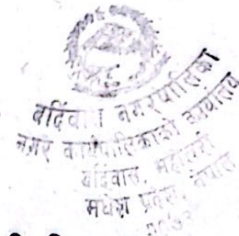 बर्दिबास नगरपालिका
नगर कार्यपालिकाको कार्यालय
बर्दिबास, महोत्तरी
मधेश प्रदेश, नेपाल
२०७३